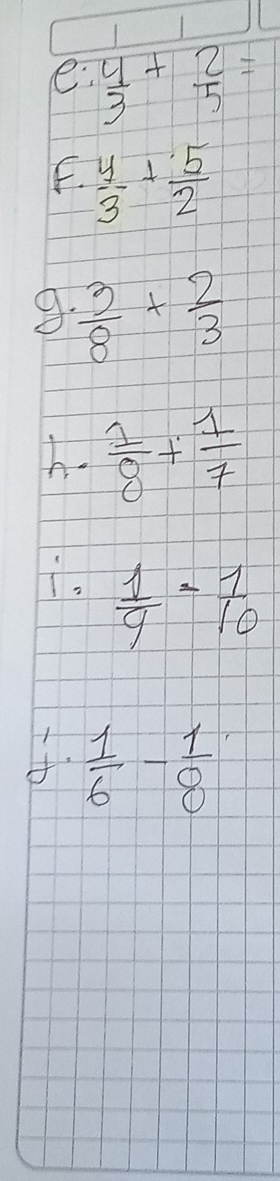 e. 4/3 + 2/5 =
f. 4/3 + 5/2
g. 3/8 + 2/3
h. 1/8 + 1/7
i. 1/9 - 1/10
j. 1/6 - 1/8